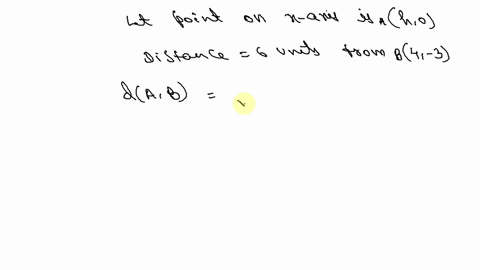 Let point on x-axis is A(h,0)
Distance = 6 units from B(4,-3)
d(A,B) =